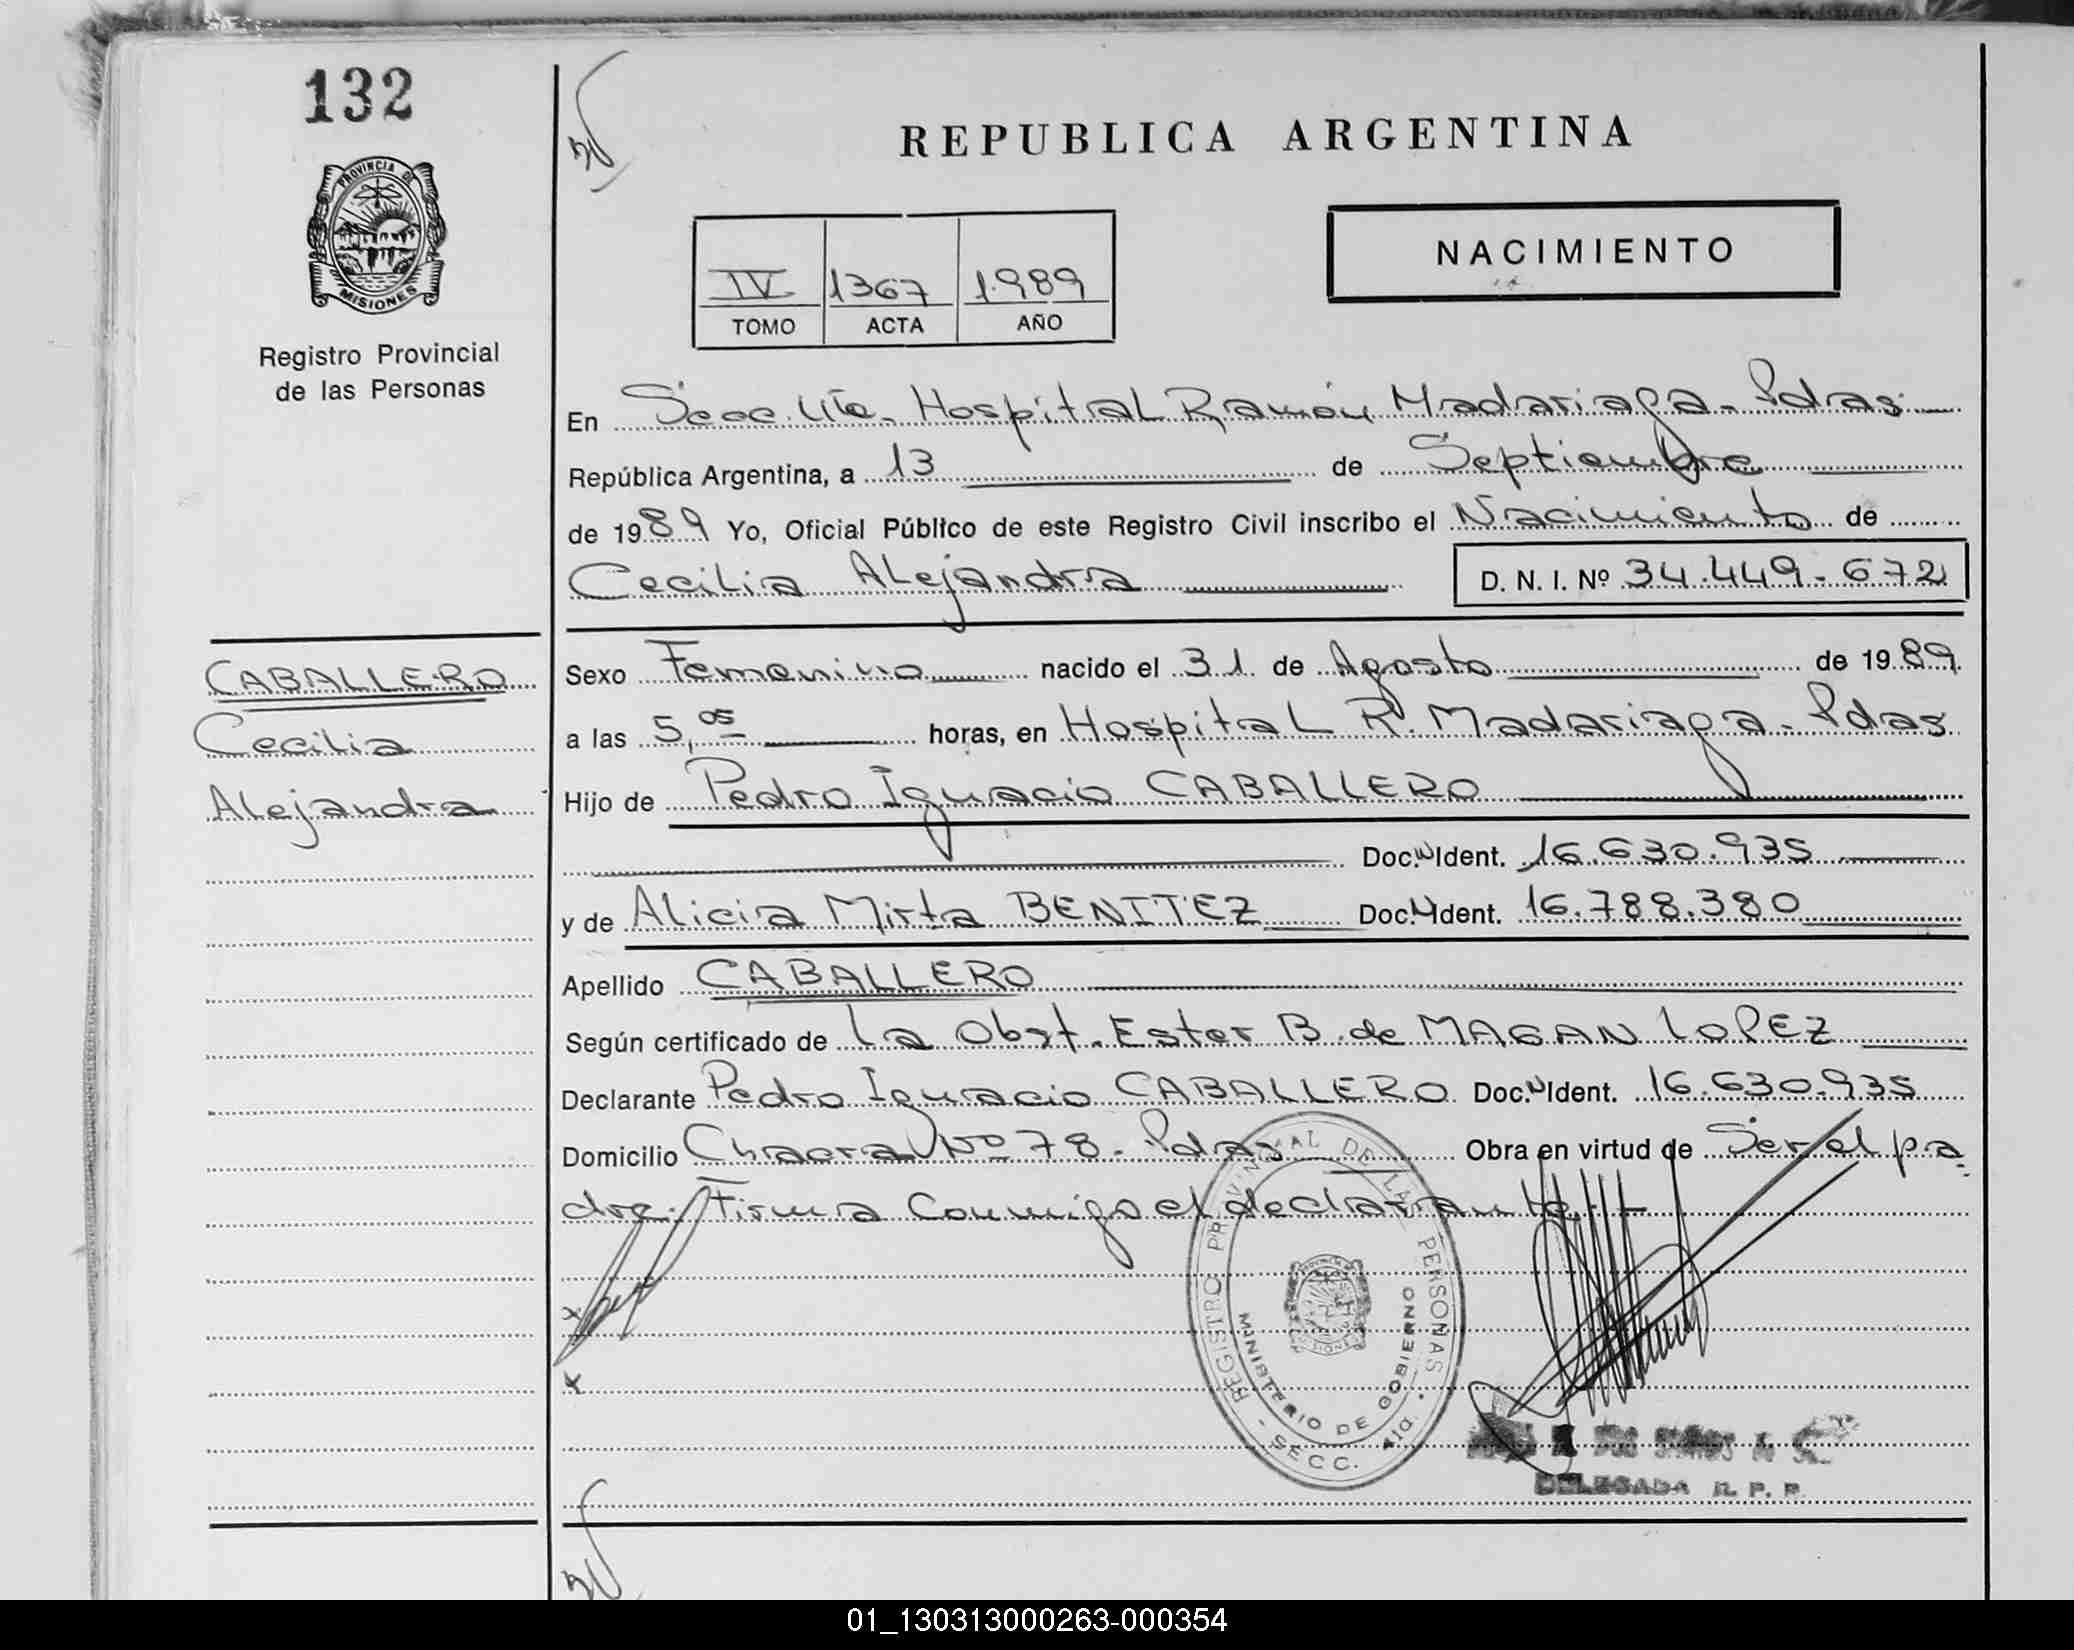 132
REPUBLICA ARGENTINA
PROVINCIA DE
MISIONES
Registro Provincial
de las Personas
NACIMIENTO
IV 1367 1989
TOMO ACTA AÑO
En Secc. 4ta. Hospital Ramón Madariaga - Pdas
República Argentina, a 13 de Septiembre
de 1989 Yo, Oficial Público de este Registro Civil inscribo el Nacimiento de
Cecilia Alejandra D. N. I. Nº 34.449.672
CABALLERO
Cecilia
Alejandra
Sexo Femenino nacido el 31 de Agosto de 1989
a las 5,05 horas, en Hospital R. Madariaga - Pdas
Hijo de Pedro Ignacio CABALLERO
Doc. N Ident. 16.630.935
y de Alicia Mirta BENITEZ Doc. N Ident. 16.788.380
Apellido CABALLERO
Según certificado de La Obst. Ester B. de MAGAN LOPEZ
Declarante Pedro Ignacio CABALLERO Doc. N Ident. 16.630.935
Domicilio Chacra Nº 78 - Pdas Obra en virtud de Ser el pa
dre. Firma Conmigo el declarante.-
REGISTRO PROVINCIAL DE LAS PERSONAS
MINISTERIO DE GOBIERNO
SECC. 4ta.
DELEGADA R. P. P.
01_130313000263-000354